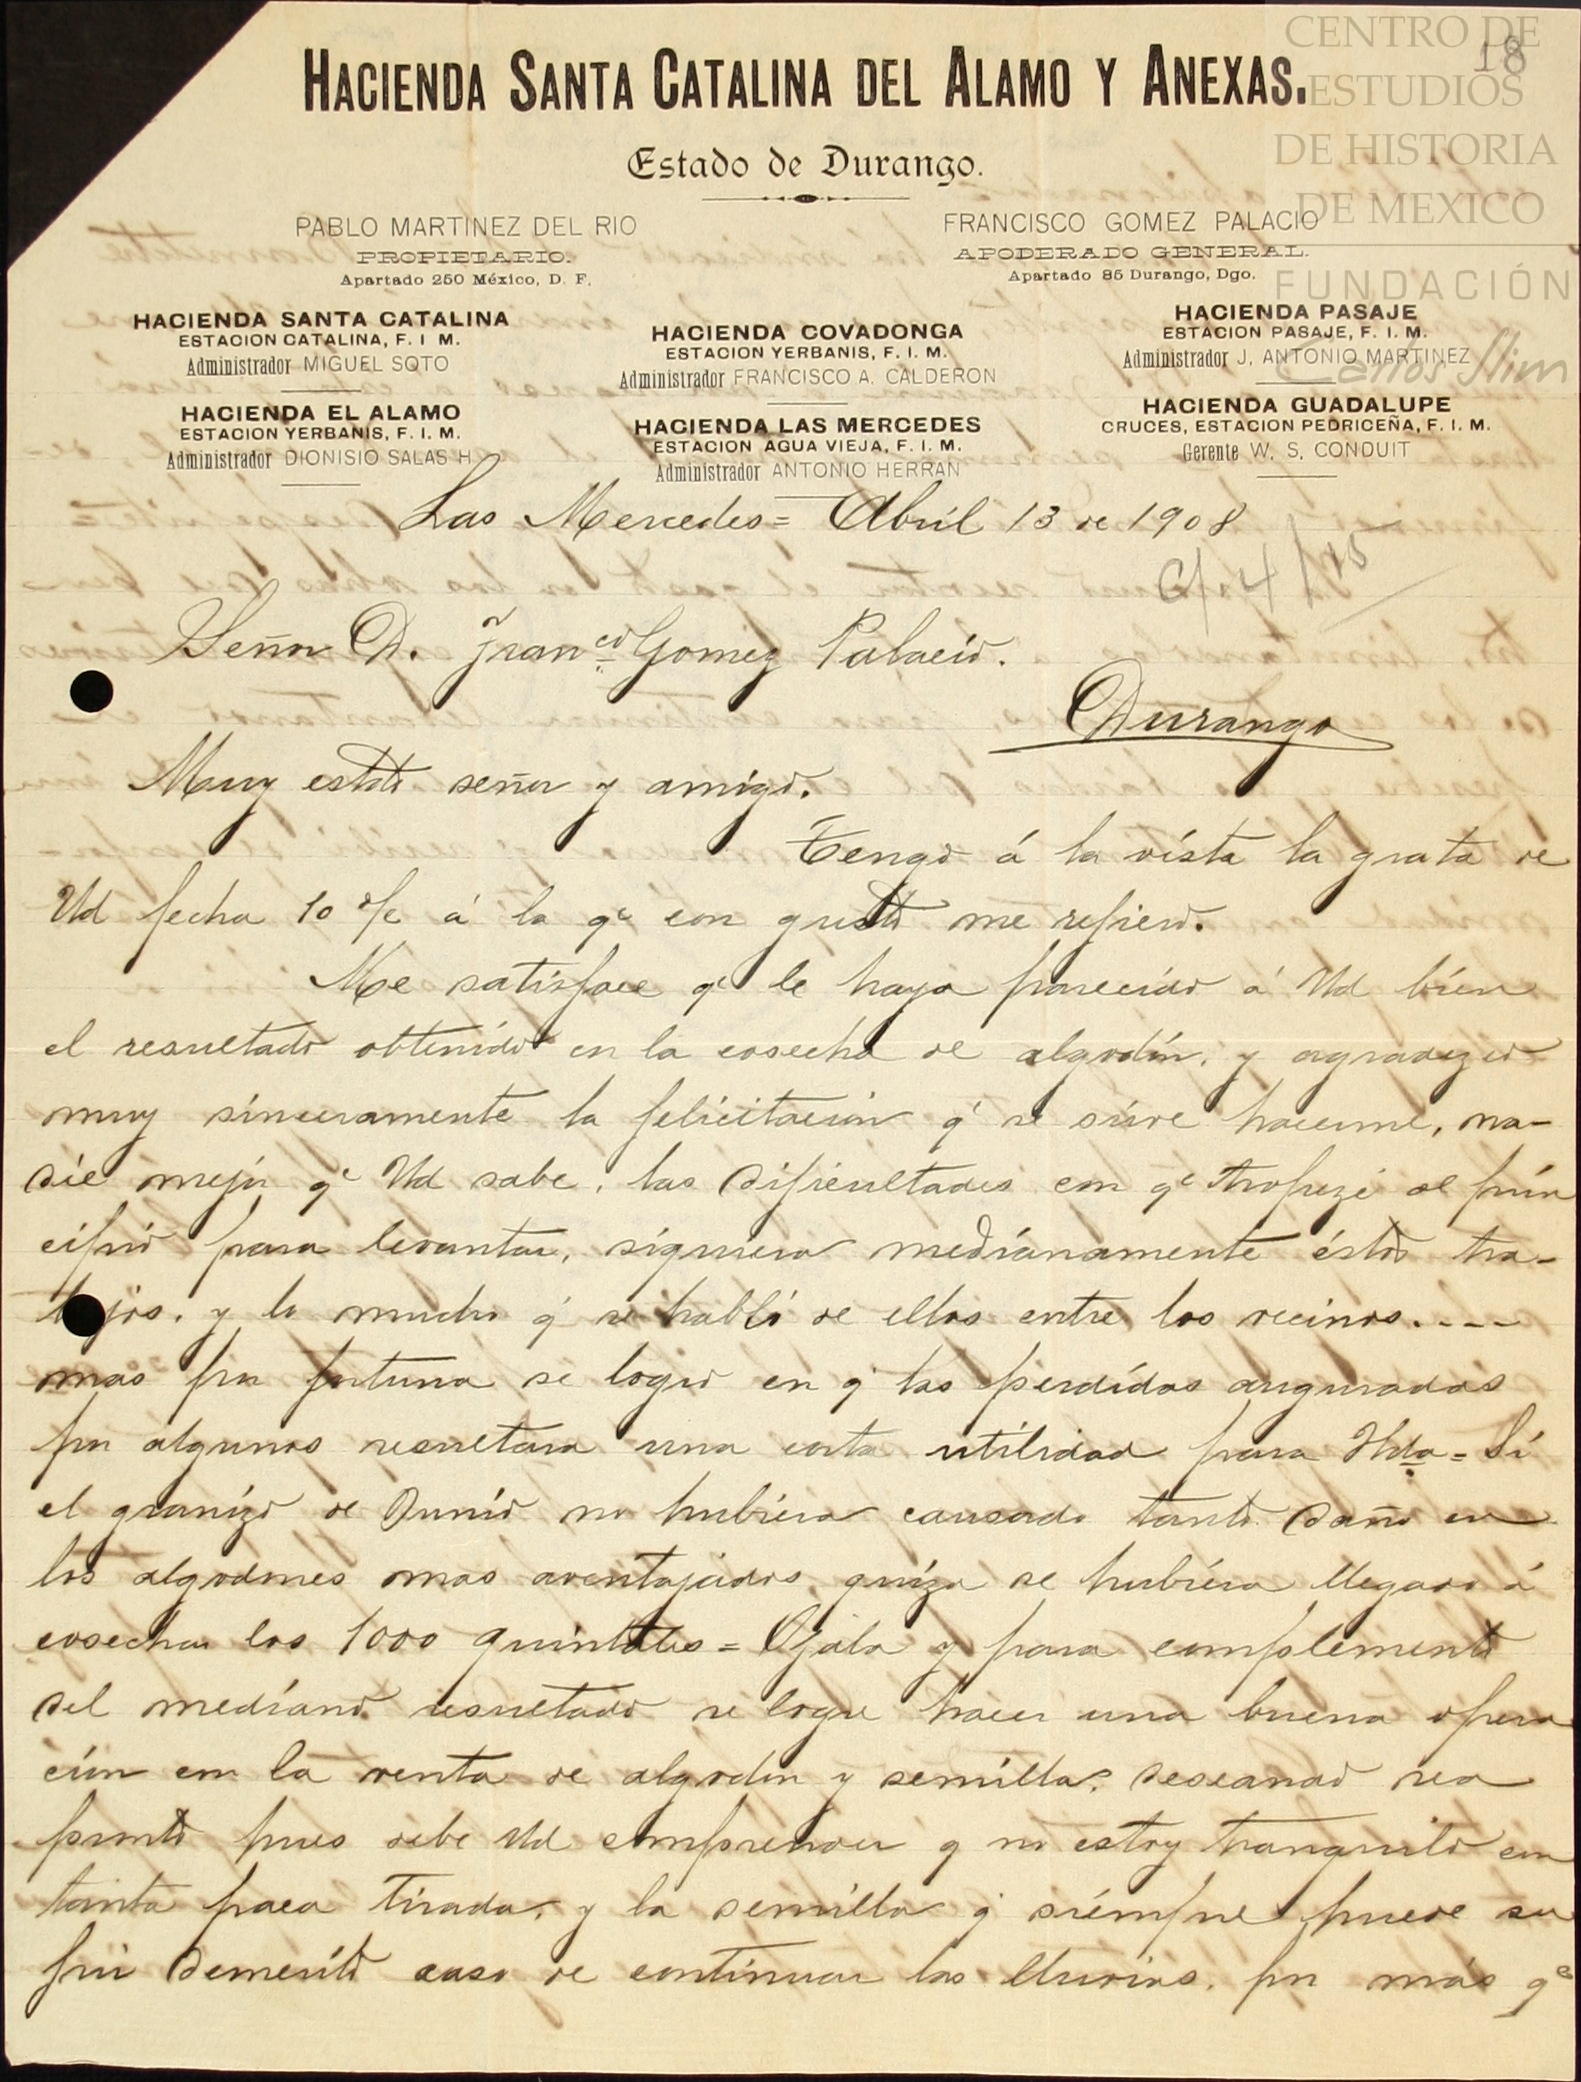 CENTRO DE
ESTUDIOS
DE HISTORIA
DE MEXICO
FUNDACIÓN
Carlos Slim
18
HACIENDA SANTA CATALINA DEL ALAMO Y ANEXAS.
Estado de Durango.
PABLO MARTINEZ DEL RIO
PROPIETARIO.
Apartado 250 México, D. F.
FRANCISCO GOMEZ PALACIO
APODERADO GENERAL.
Apartado 85 Durango, Dgo.
HACIENDA SANTA CATALINA
ESTACION CATALINA, F. I M.
Administrador MIGUEL SOTO
HACIENDA EL ALAMO
ESTACION YERBANIS, F. I. M.
Administrador DIONISIO SALAS H.
HACIENDA COVADONGA
ESTACION YERBANIS, F. I. M.
Administrador FRANCISCO A. CALDERON
HACIENDA LAS MERCEDES
ESTACION AGUA VIEJA, F. I. M.
Administrador ANTONIO HERRAN
HACIENDA PASAJE
ESTACION PASAJE, F. I. M.
Administrador J. ANTONIO MARTINEZ
HACIENDA GUADALUPE
CRUCES, ESTACION PEDRICEÑA, F. I. M.
Gerente W. S. CONDUIT
Las Mercedes = Abril 13 de 1908
C/. 4/15
Señor D. Franco Gomez Palacio.
Durango
Muy estdo señor y amigo.
Tengo á la vista la grata de
Ud fecha 10 de á la qe con gusto me refiero.
Me satisface qe le haya parecido á Ud bien
el resultado obtenido en la cosecha de algodón, y agradezco
muy sinceramente la felicitacion q' se sirve hacerme, na-
die mejor qe Ud sabe, las dificultades con qe tropezé al prin
cipio para levantar, siquiera medianamente éstos tra-
bajos, y lo mucho q' se habló de ellos entre los vecinos....
mas por fortuna se logro en q' las perdidas auguradas
por algunos resultara una corta utilidad para Hda = Si
el granizo de Junio no hubiera causado tanto daño en
los algodones mas aventajados, quiza se hubiera llegado á
cosechar los 1000 quintales = Ojala y para complemento
del mediano resultado se logre hacer una buena opera
ción con la venta de algodon y semilla, deseando sea
pronto pues debe Ud comprender q no estoy tranquilo con
tanta paca tirada, y la semilla q' siempre puede su
frir demerito caso de continuar las lluvias, por más qe